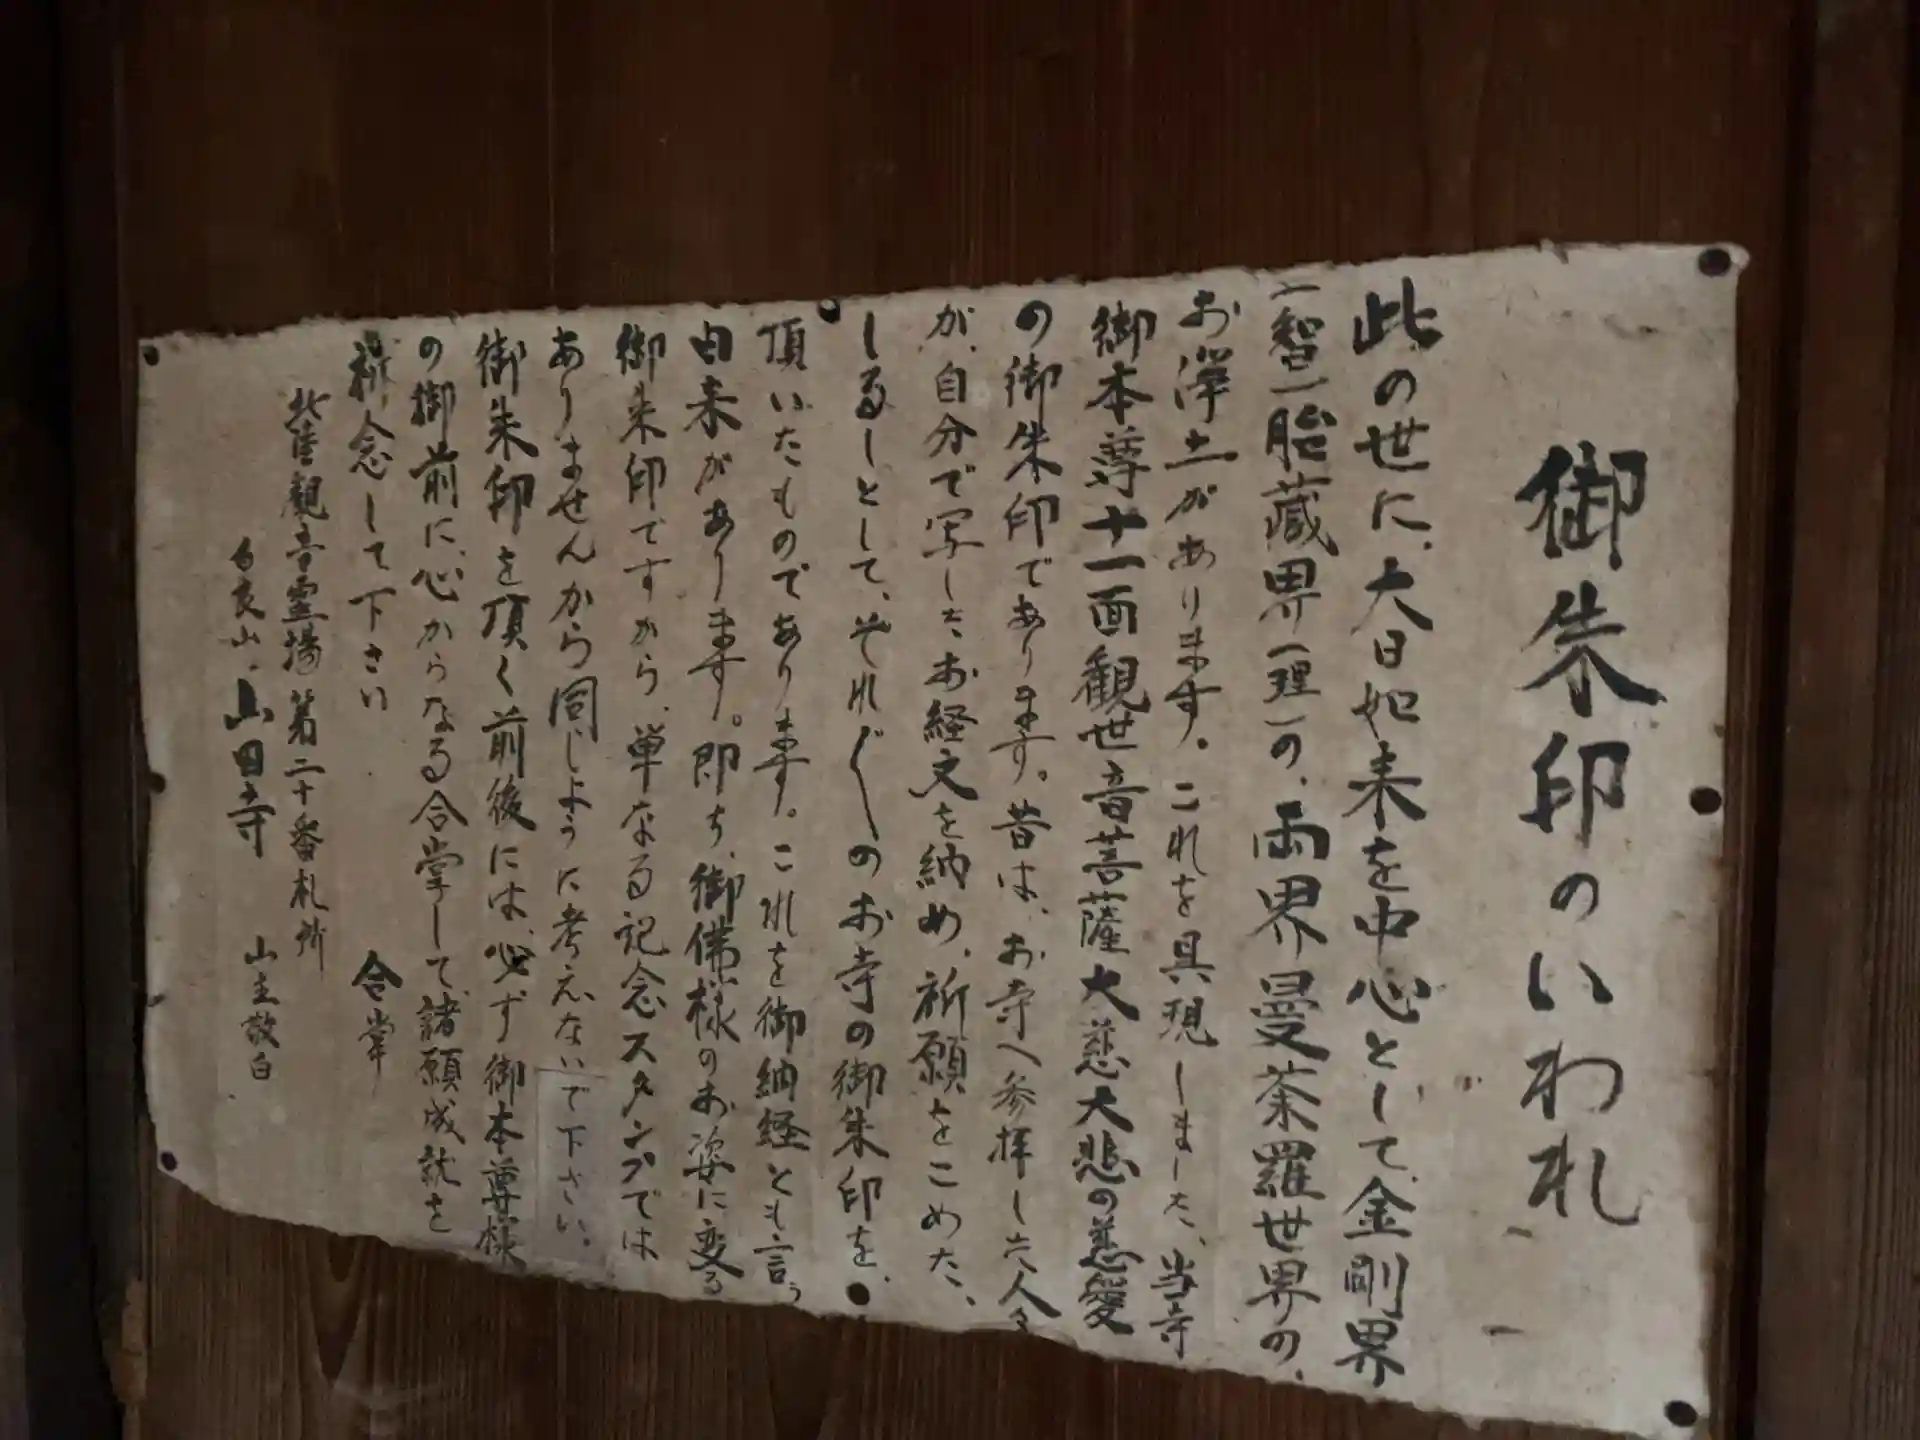 御朱印のいわれ
此の世に、大日如来を中心として、金剛界
(智)胎蔵界(理)の、両界曼荼羅世界の、
お浄土があります。これを具現しました、当寺
御本尊十一面観世音菩薩大慈大悲の慈愛
の御朱印であります。昔は、お寺へ参拝した人々
が、自分で写したお経文を納め、祈願をこめた、
しるしとして、それ〲のお寺の御朱印を、
頂いたものであります。これを御納経とも言う
由来があります。即ち、御佛様のお姿に変る
御朱印ですから、単なる記念スタンプでは
ありませんから同じように考えないで下さい。
御朱印を頂く前後には、必ず御本尊様
の御前に、心からなる合掌して、諸願成就を
祈念して下さい 合掌
北陸観音霊場第二十番札所
白良山 山田寺 山主敬白